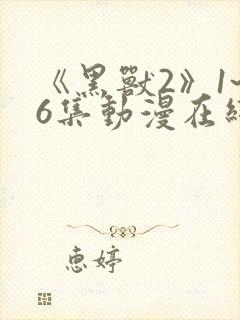 《黑獸2》1~
6集動漫在線
惠婷